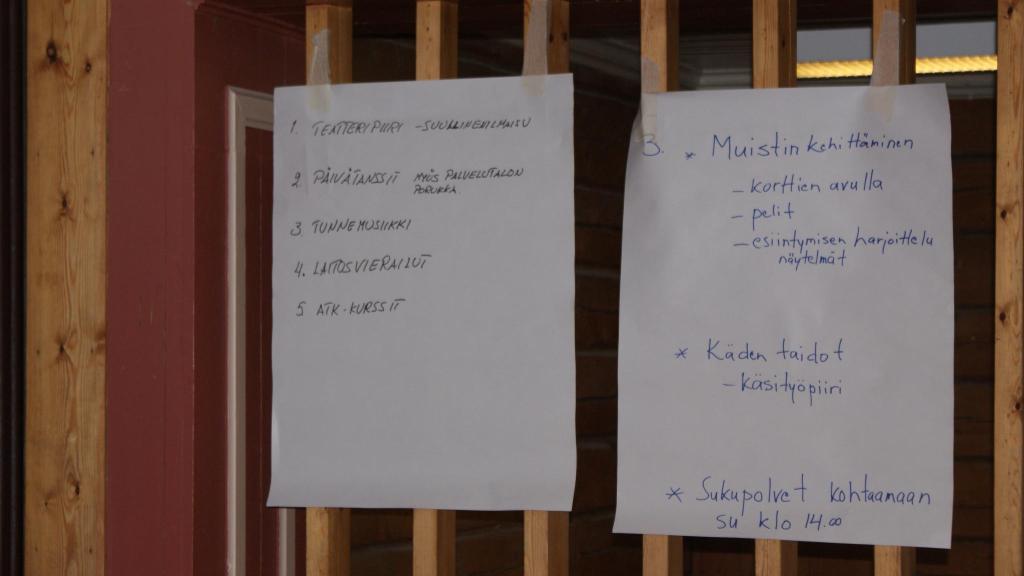 1. TEATTERIPIIRI - SUULLINEN ILMAISU
2. PÄIVÄTANSSIT MYÖS PALVELUTALON
PORUKKA
3. TUNNEMUSIIKKI
4. LAITOSVIERAILUT
5 ATK-KURSSIT
3. * Muistin kehittäminen
- korttien avulla
- pelit
- esiintymisen harjoittelu
näytelmät
* Käden taidot
- käsityöpiiri
* Sukupolvet kohtaamaan
su klo 14.00